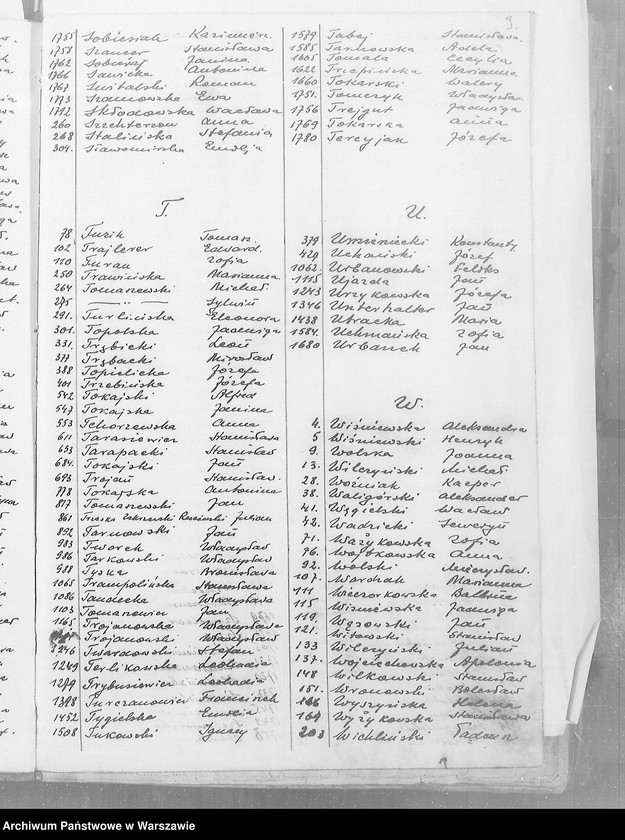 9.
1755 Sobiesiak Kazimiera.
1758 Szancer Stanisława
1762 Sobieraj Janina
1766 Sawicka Antonina
1767 Smitalski Roman
1773 Szamowska Ewa
1712 Skłodowska Wacława
260 Szechterson Anna
268 Stalińska Stefania
304. Sławomirska Emilja
T.
78 Tuzik Tomasz.
102 Trajlerer Edward.
110 Turan Zofia
250 Trawińska Marianna
264 Tomaszewski Michał
275 —"— Sylwin
291. Turlińska Eleonora
301. Topolska Jadwiga
331. Trzbicki Leon
377 Trzbacki Mirosław
388 Topielicka Józefa
401 Trzebińska Józefa
542 Tokajski Alfred
547 Tokajska Janina
553 Tchorzewska Anna
611 Tarasiewicz Stanisława
653 Tarapacki Stanisław
684. Tokajski Jan
693 Trojan Stanisław.
778 Tokarska Antonina
817 Tomaszewski Jan
861 Truska Julian
892 Tarnowski Jan
983 Tworek Władysław
986 Tarkowski Władysław
988 Tyska Bronisława
1065 Trampolińska Stanisława
1086 Tandecka Władysława
1103 Tomanowicz Jan
1165 Trojanowska Władysława
Trojanowski Władysław
1246 Twardowski Stefan
1249 Terlikowska Leokadia
1279 Trybusiewicz Leokadia
1398 Turczanowicz Franciszek
1452 Tygielska Emilia
1508 Tukowski Ignacy
1579 Tabej Stanisława.
1585 Tarnowska Adela
1605 Tomala Cecylia
1622 Trzepińska Marianna
1660 Tokarski Walery
1751. Tomczyk Władysław
1756 Trejgut Jadwiga
1769 Tokarska Anna
1780 Tercyjak Józefa
U.
379 Umieniecki Konstanty.
429 Uchański Józef
1062. Urbanowski Feliks
1115 Ujazda Jan
1243 Urzykowska Józefa
1346 Unterhalter Jan
1438 Utracka Maria
1584. Uchmańska Zofia
1680 Urbanek Jan
W.
4. Wiśniewska Aleksandra
5 Wiśniewski Henryk
9. Wolska Joanna
13. Wilczyński Michał
28. Woźniak Kacper
38. Waligórski Aleksander
41. Węgielski Wacław
42. Wadzicki Seweryn
71. Ważykowska Zofia
76. Wojtkowska Anna
92. Wolski Mieczysław.
107. Wardak Marianna
111 Wieczorkowska Balbina
115 Wiśniewska Jadwiga
119. Wąsowski Jan
121. Witowski Stanisław
133 Wilczyński Julian
137. Wojciechowska Apolonia
148 Wilkowski Stanisław
151. Wronowski Bolesław
166 Wyszyńska Helena
169 Wyżykowska Stanisława
203 Wichliński Tadeusz
Archiwum Państwowe w Warszawie